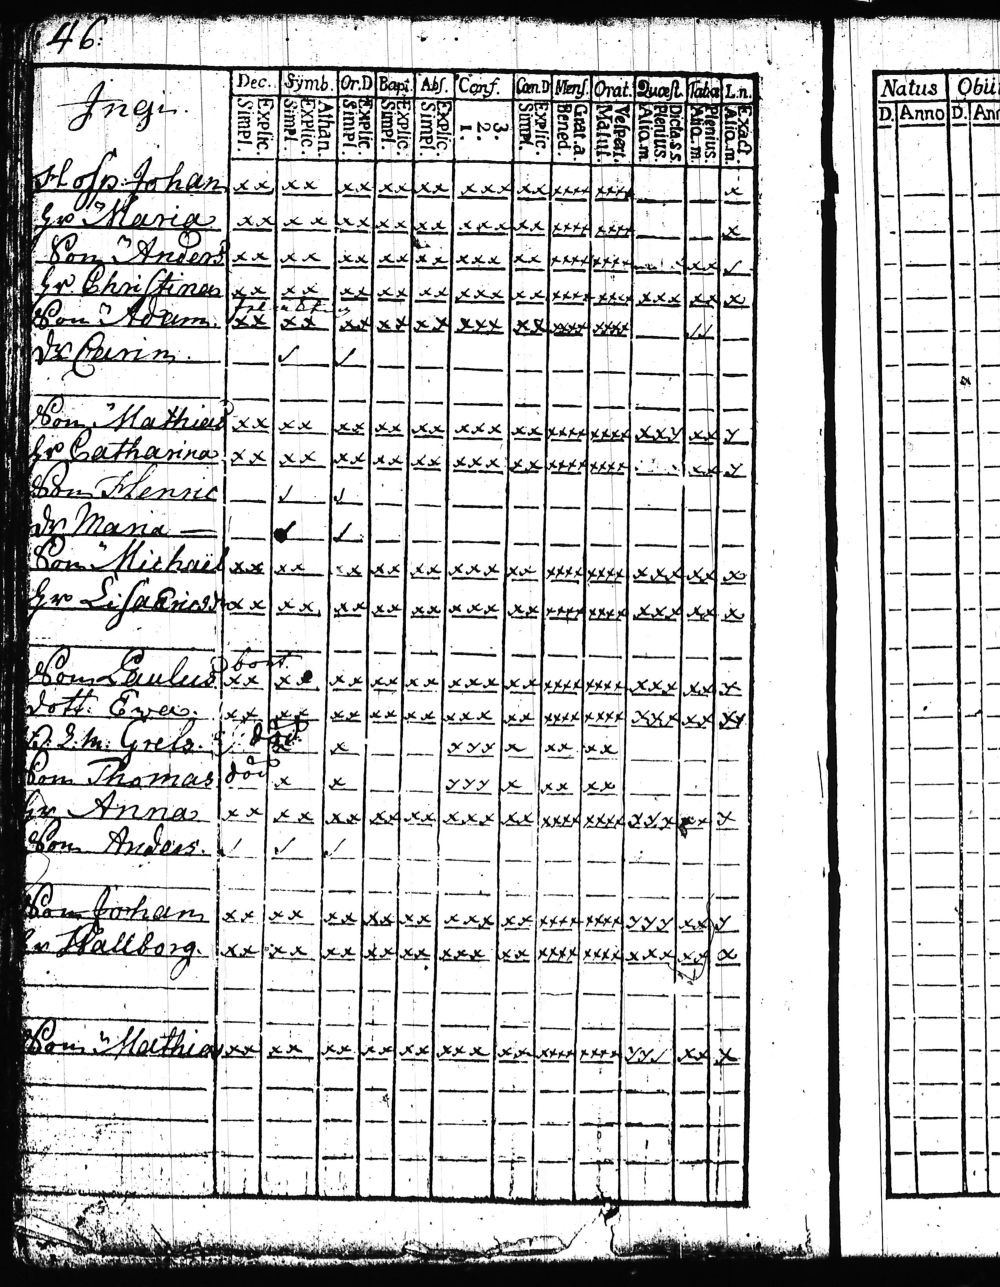 46:
Dec. Symb. Or.D Bapt. Abs. Conf. Cœn.D Mens. Orat. Quæst. Tabæ L.n.
Explic. Simpl. Athan. Explic. Simpl. Explic. Simpl. Explic. Simpl. Explic. Simpl. 3. 2. 1. Explic. Simpl. Grat. a. Bened. Vespert. Matut. Dicta s.s. Plenius. Alio. m. Plenius. Alio. m. Exact. Alio. m.
Natus Obiit
D. Anno D. Ann
Hosp: Johan x x x x x x x x x x x x x x x xxxx xxxx x
Hr Maria x x x x x x x x x x x x x x x xxxx xxxx x
Son Anders x x x x x x x x x x x x x x x xxxx xxxx x x ✓
Hr. Christina x x x x x x x x x x x x x x x xxxx xxxx x x x x x x
Son Adam. x x x x x x x x x x x x x x x xxxx xxxx ✓✓
dr Carin. ✓ ✓
Son Mathias x x x x x x x x x x x x x x x xxxx xxxx x x y x x y
Hr Catharina x x x x x x x x x x x x x x x xxxx xxxx x x y
Son Henric ✓ ✓
dr Maria — ✓ ✓
Son Michaël x x x x x x x x x x x x x x x xxxx xxxx x x x x x x
Hr Lisa Ericsdr x x x x x x x x x x x x x x x xxxx xxxx x x x x x x
bort
Son Paulus x x x x x x x x x x x x x x x xxxx xxxx x x x x x x
dott: Eva. x x x x x x x x x x x x x x x xxxx xxxx x x x x x x y
Greta. död x x y y x x x x x
Son Thomas död x x y y y x x x x x
Hr Anna x x x x x x x x x x x x x x x xxxx xxxx y y y x x x
Son Anders. ✓ ✓ ✓
Son Johan x x x x x x x x x x x x x x x xxxx xxxx y y y x x y
Hr Wallborg. x x x x x x x x x x x x x x x xxxx xxxx x x x x x x
Son Mathias x x x x x x x x x x x x x x x xxxx xxxx y y ✓ x x x